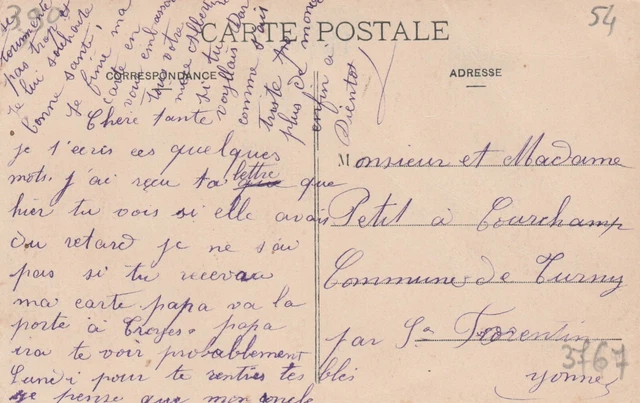 390
CARTE POSTALE
54
CORRESPONDANCE
ADRESSE
Chère tante
je t'ecris ces quelques
mots. j'ai reçu ta lettre que
hier tu vois si elle avais
du retard je ne sau
pais si tu recevau
ma carte papa va la
porte à Troyes. papa
ira te voir probablement
Lundi pour te rentrés tes blés
je pense que mon oncle
se
tourmente
pas trop
je lui souhaite
bonne santé,
Je finie ma
carte en
vous embrassant
tous votre
nièce
si tu
voyllais
comme
triste
plus de monde
enfin à
Bientot
Monsieur et Madame
Petit à Courchamp
Commune de Turny
par St Florentin
3767
Yonne